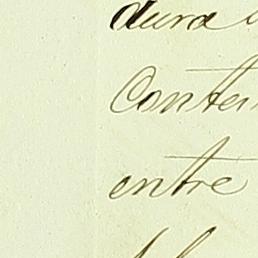 dura
Conten
entre